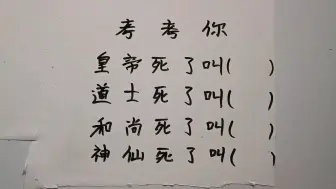 考考你
皇帝死了叫( )
道士死了叫( )
和尚死了叫( )
神仙死了叫( )